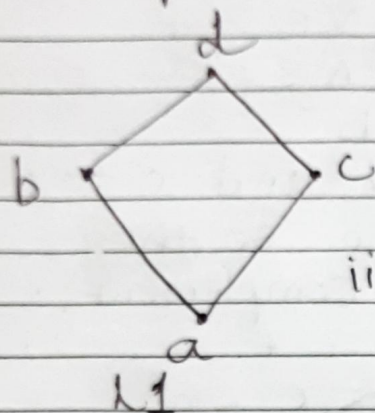 d
b
c
ii
a
L1